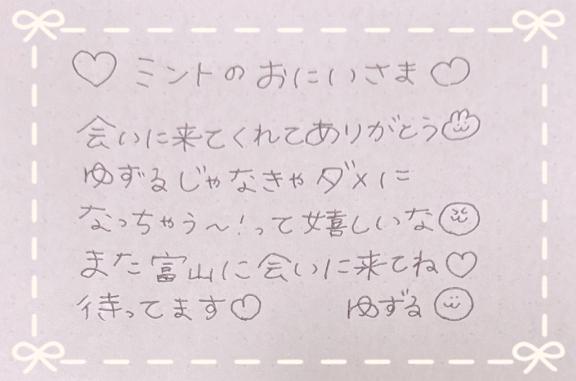 ♡ミントのおにいさま♡
会いに来てくれてありがとう
ゆずるじゃなきゃダメに
なっちゃう〜!って嬉しいな
また富山に会いに来てね♡
待ってます♡ ゆずる